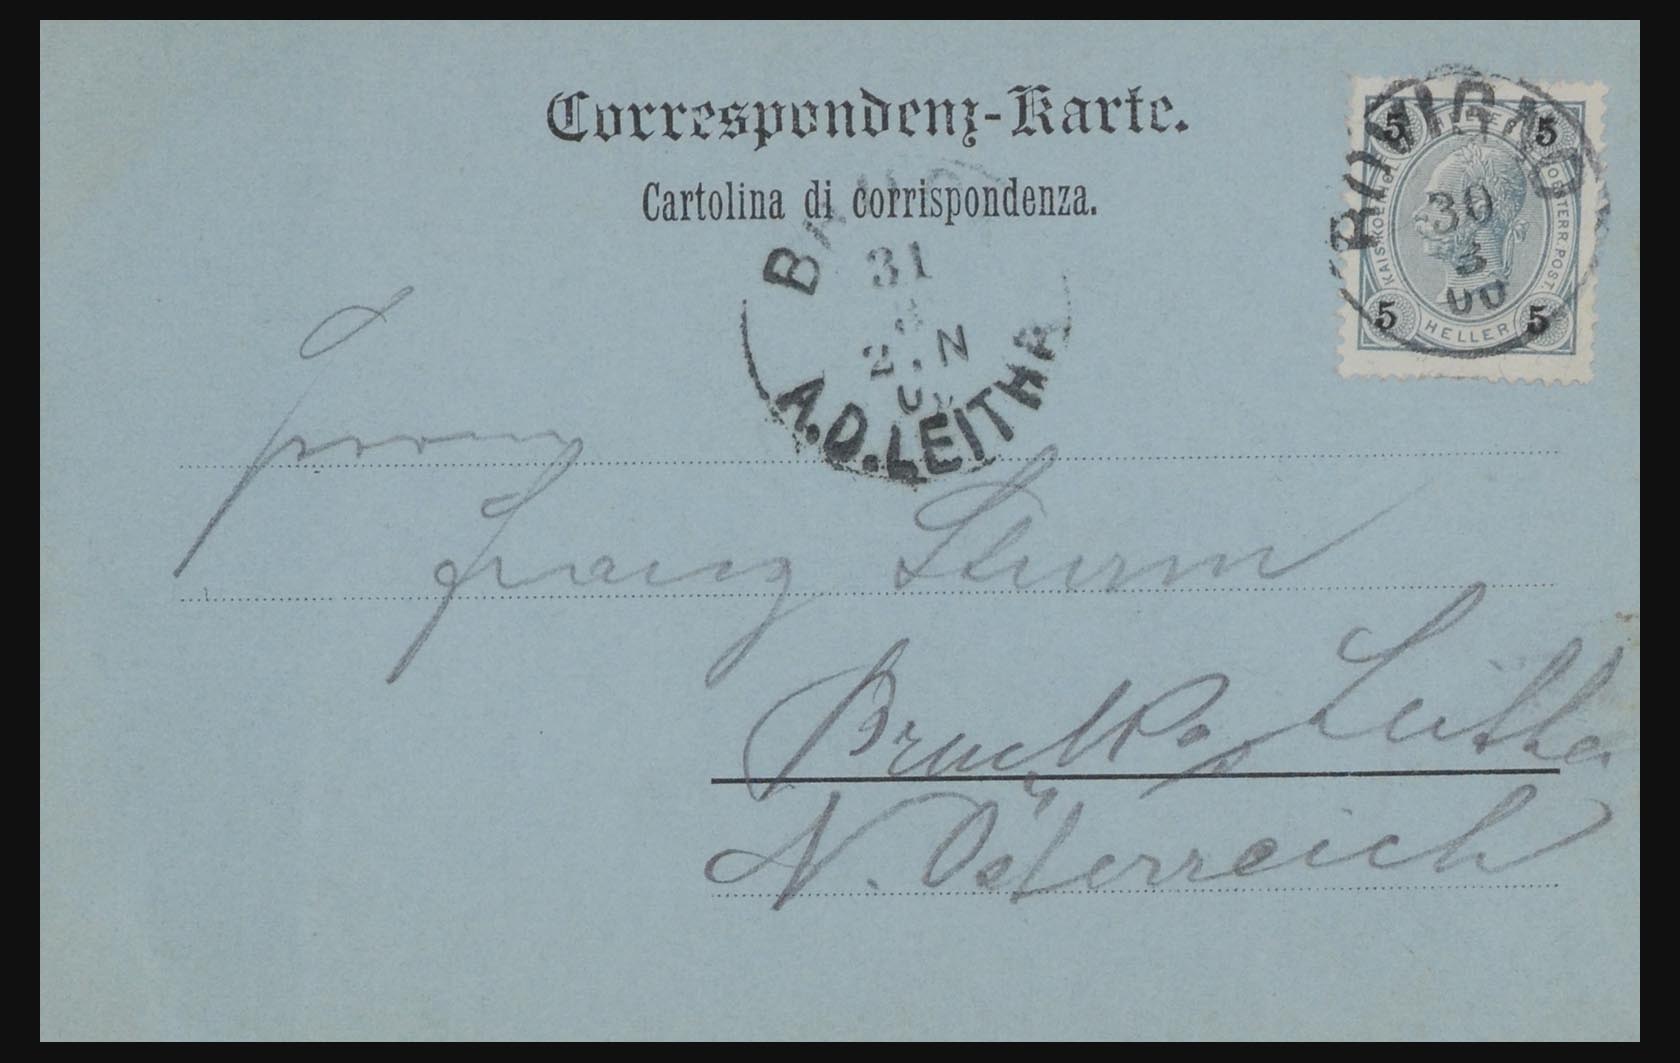 Correspondenz-Karte.
Cartolina di corrispondenza.
5 HELLER 5
KAISKOENIGL OESTERR.POST.
5 HELLER 5
ROVIGNO
30
3
00
31
2.N
A.D.LEITHA
Franz Sturm
Bruck Leitha
N. Österreich